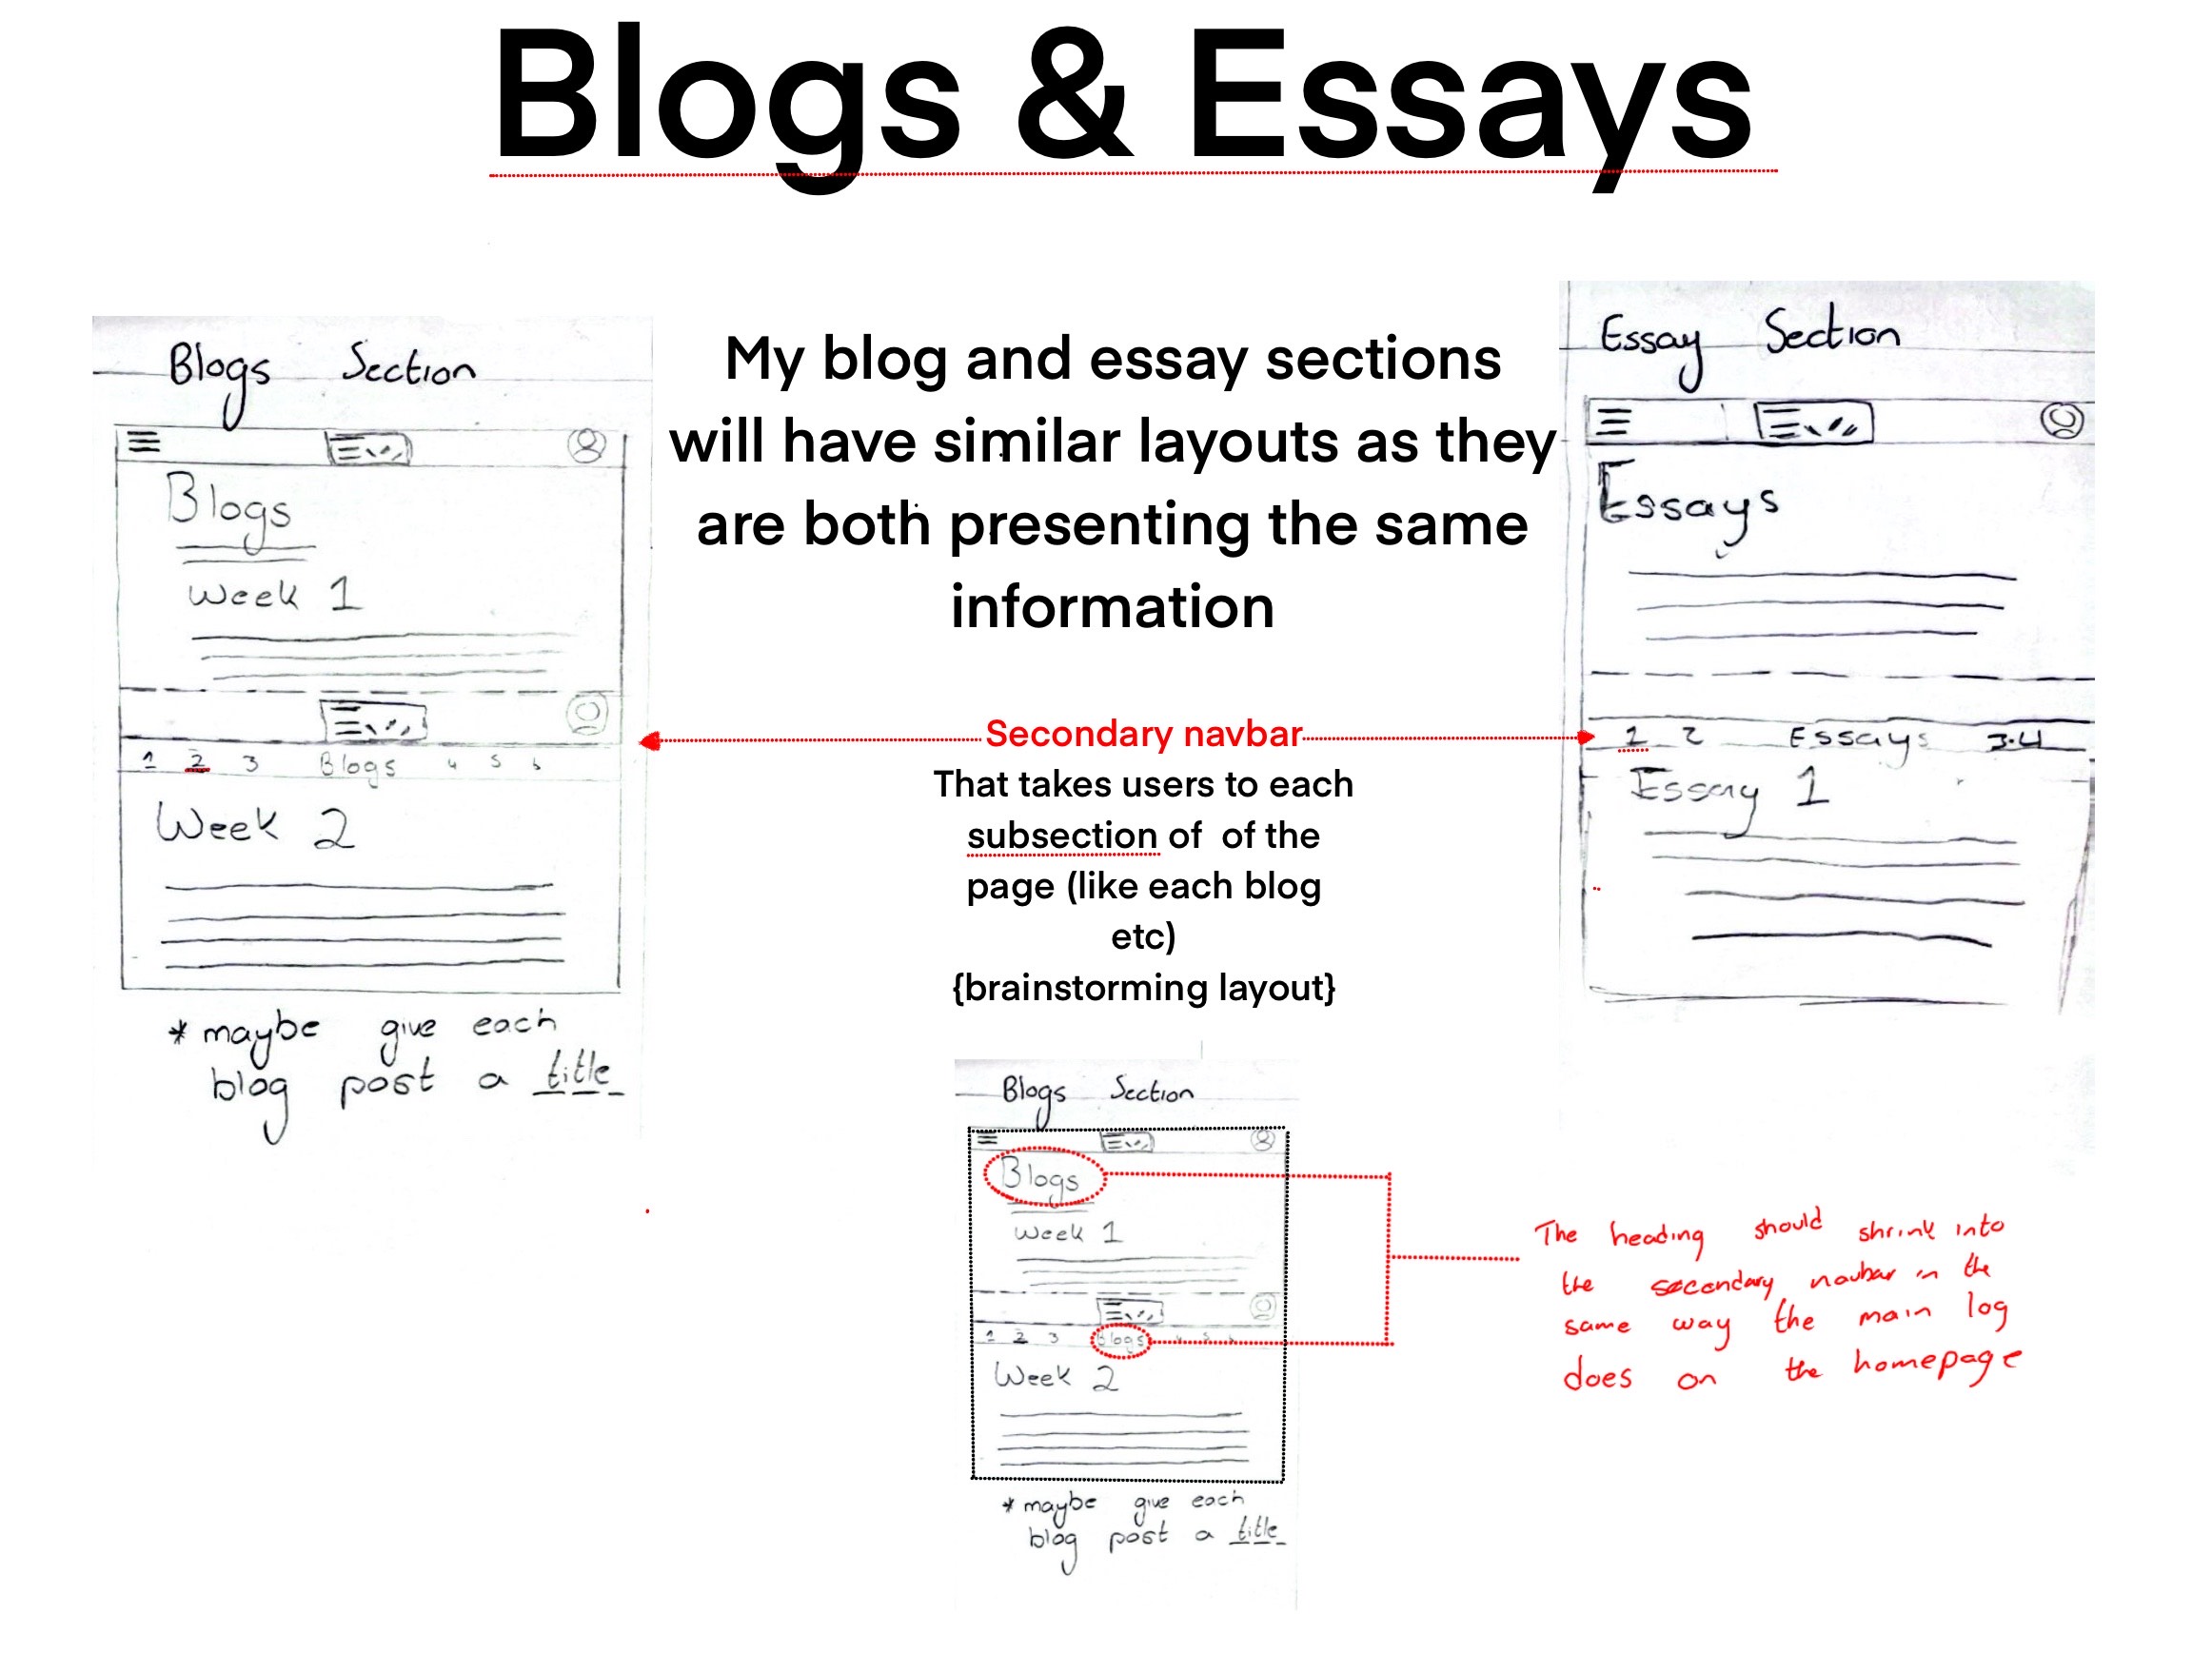 Blogs & Essays
Blogs Section
Blogs
Week 1
1 2 3 Blogs 4 5 6
Week 2
* maybe give each
blog post a title
My blog and essay sections
will have similar layouts as they
are both presenting the same
information
Secondary navbar
That takes users to each
subsection of of the
page (like each blog
etc)
{brainstorming layout}
Essay Section
Essays
1 2 Essays 3.4
Essay 1
Blogs Section
Blogs
Week 1
1 2 3 Blogs 4 5 6
Week 2
* maybe give each
blog post a title
The heading should shrink into
the secondary navbar in the
same way the main log
does on the homepage